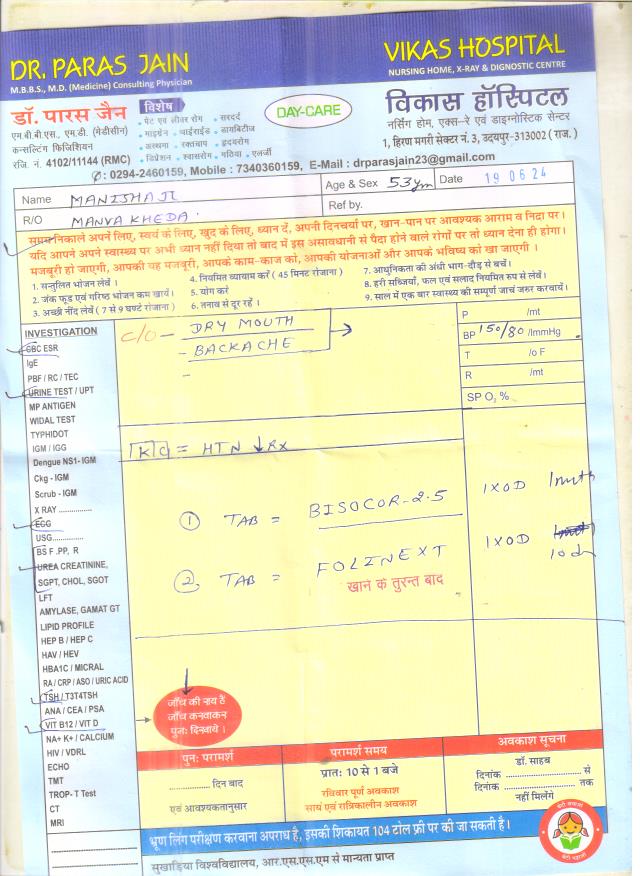 DR. PARAS JAIN
M.B.B.S., M.D. (Medicine) Consulting Physician
VIKAS HOSPITAL
NURSING HOME, X-RAY & DIGNOSTIC CENTRE
डॉ. पारस जैन
एम.बी.बी.एस., एम.डी. (मेडीसीन)
कन्सल्टिंग फिजिशियन
रजि. नं. 4102/11144 (RMC)
विशेष
• पेट एवं लीवर रोग • सरदर्द
• माइग्रेन • थाईराईड • डायबिटीज
• अस्थमा • रक्तचाप • हृदयरोग
• डिप्रेशन • श्वासरोग • गठिया • एलर्जी
DAY-CARE
विकास हॉस्पिटल
नर्सिंग होम, एक्स-रे एवं डाइग्नोस्टिक सेन्टर
1, हिरण मगरी सेक्टर नं. 3, उदयपुर-313002 ( राज. )
: 0294-2460159, Mobile : 7340360159, E-Mail : drparasjain23@gmail.com
Name MANISHA JI
Age & Sex 53 ym
Date 19 06 24
R/O MANVA KHEDA
Ref by.
समय निकाले अपने लिए, स्वयं के लिए, खुद के लिए, ध्यान दें, अपनी दिनचर्या पर, खान-पान पर आवश्यक आराम व निद्रा पर।
यदि आपने अपने स्वास्थ्य पर अभी ध्यान नहीं दिया तो बाद में इस असावधानी से पैदा होने वाले रोगों पर तो ध्यान देना ही होगा।
मजबूरी हो जाएगी, आपकी यह मजबूरी, आपके काम-काज को, आपकी योजनाओं और आपके भविष्य को खा जाएगी ।
1. सन्तुलित भोजन लेवें ।
2. जंक फूड एवं गरिष्ठ भोजन कम खायें।
3. अच्छी नींद लेवें ( 7 से 9 घण्टे रोजाना )
4. नियमित व्यायाम करें ( 45 मिनट रोजाना )
5. योग करे
6. तनाव से दूर रहें ।
7. आधुनिकता की अंधी भाग-दौड़ से बचें।
8. हरी सब्जियां, फल एवं सलाद नियमित रूप से लेवें।
9. साल में एक बार स्वास्थ्य की सम्पूर्ण जाचं जरुर करवायें।
INVESTIGATION
CBC ESR
IgE
PBF / RC / TEC
URINE TEST / UPT
MP ANTIGEN
WIDAL TEST
TYPHIDOT
IGM / IGG
Dengue NS1- IGM
Ckg - IGM
Scrub - IGM
X RAY ..............
EGG
USG..............
BS F .PP, R
UREA CREATININE,
SGPT, CHOL, SGOT
LFT
AMYLASE, GAMAT GT
LIPID PROFILE
HEP B / HEP C
HAV / HEV
HBA1C / MICRAL
RA / CRP / ASO / URIC ACID
TSH / T3T4TSH
ANA / CEA / PSA
VIT B12 / VIT D
NA+ K+ / CALCIUM
HIV / VDRL
ECHO
TMT
TROP- T Test
CT
MRI
C/O - DRY MOUTH
- BACKACHE
-
P /mt
BP 150/80 /ImmHg
T /o F
R /mt
SP O2 %
K/C = HTN ↓ Rx
① TAB = BISOCOR-2.5 1XOD 1 mnth
② TAB = FOLINEXT 1XOD
खाने के तुरन्त बाद
जाँच की नाय हैं
जाँच कनवाकन
पुनः दिनवाये ।
पुनः परामर्श
.............. दिन बाद
एवं आवश्यकतानुसार
परामर्श समय
प्रातः 10 से 1 बजे
रविवार पूर्ण अवकाश
सायं एवं रात्रिकालीन अवकाश
अवकाश सूचना
डॉ. साहब
दिनांक .............. से
दिनांक .............. तक
नहीं मिलेंगे
भ्रूण लिंग परीक्षण करवाना अपराध है, इसकी शिकायत 104 टोल फ्री पर की जा सकती है।
सुखाड़िया विश्वविद्यालय, आर.एस.एस.एम से मान्यता प्राप्त
बेटी बचाओ
बेटी पढ़ाओ